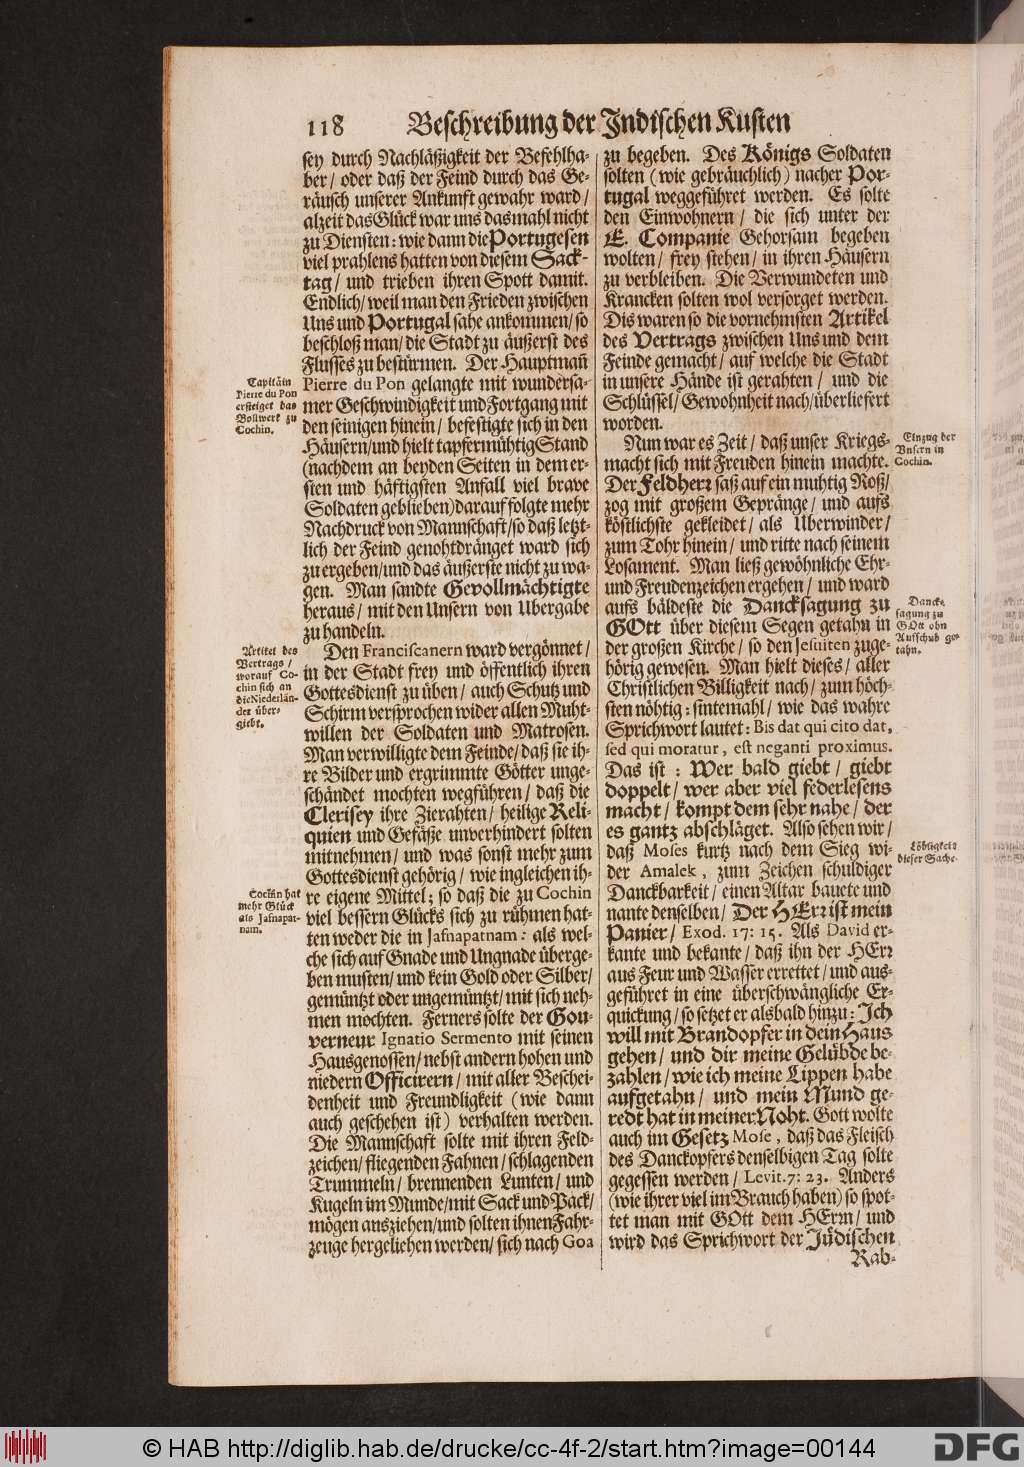 118 Beschreibung der Indischen Kusten
sey durch Nachläßigkeit der Befehlha-
ber/ oder daß der Feind durch das Ge-
räusch unserer Ankunft gewahr ward/
alzeit das Glück war uns dasmahl nicht
zu Diensten: wie dann die Portugesen
viel prahlens hatten von diesem Sack-
tag/ und trieben ihren Spott damit.
Endlich/ weil man den Frieden zwischen
Uns und Portugal sahe ankommen/ so
beschloß man/ die Stadt zu äußerst des
Flusses zu bestürmen. Der Hauptmañ
Pierre du Pon gelangte mit wundersa-
mer Geschwindigkeit und Fortgang mit
den seinigen hinein/ befestigte sich in den
Häusern/ und hielt tapfermühtig Stand
(nachdem an beyden Seiten in dem er-
sten und häftigsten Anfall viel brave
Soldaten geblieben) darauf folgte mehr
Nachdruck von Mannschaft/ so daß letzt-
lich der Feind genohtdränget ward sich
zu ergeben/ und das äußerste nicht zu wa-
gen. Man sandte Gevollmächtigte
heraus/ mit den Unsern von Ubergabe
zu handeln.
Den Franciscanern ward vergönnet/
in der Stadt frey und öffentlich ihren
Gottesdienst zu üben/ auch Schutz und
Schirm versprochen wider allen Muht-
willen der Soldaten und Matrosen.
Man verwilligte dem Feinde/ daß sie ih-
re Bilder und ergrimmte Götter unge-
schändet mochten wegführen/ daß die
Clerisey ihre Zierahten/ heilige Reli-
quien und Gefäße unverhindert solten
mitnehmen/ und was sonst mehr zum
Gottesdienst gehörig/ wie ingleichen ih-
re eigene Mittel; so daß die zu Cochin
viel bessern Glücks sich zu rühmen hat-
ten weder die in Jafnapatnam: als wel-
che sich auf Gnade und Ungnade überge-
ben musten/ und kein Gold oder Silber/
gemüntzt oder ungemüntzt/ mit sich neh-
men mochten. Ferners solte der Gou-
verneur Ignatio Sermento mit seinen
Hausgenossen/ nebst andern hohen und
niedern Officirern/ mit aller Beschei-
denheit und Freundligkeit (wie dann
auch geschehen ist) verhalten werden.
Die Mannschaft solte mit ihren Feld-
zeichen/ fliegenden Fahnen/ schlagenden
Trummeln/ brennenden Lunten/ und
Kugeln im Munde/ mit Sack und Pack/
mögen ausziehen/ und solten ihnen Fahr-
zeuge hergeliehen werden/ sich nach Goa
Capitäin
Pierre du Pon
ersteiget das
Bollwerk zu
Cochin.
Artikel des
Vertrags/
worauf Co-
chin sich an
die Niederlän-
der über-
giebt.
Cochin hat
mehr Glück
als Jafnapat-
nam.
zu begeben. Des Königs Soldaten
solten (wie gebräuchlich) nacher Por-
tugal weggeführet werden. Es solte
den Einwohnern/ die sich unter der
E. Companie Gehorsam begeben
wolten/ frey stehen/ in ihren Häusern
zu verbleiben. Die Verwundeten und
Krancken solten wol versorget werden.
Dis waren so die vornehmsten Artikel
des Vertrags zwischen Uns und dem
Feinde gemacht/ auf welche die Stadt
in unsere Hände ist gerahten/ und die
Schlüssel/ Gewohnheit nach/ überliefert
worden.
Nun war es Zeit/ daß unser Kriegs-
macht sich mit Freuden hinein machte.
Der Feldherr saß auf ein muhtig Roß/
zog mit großem Gepränge/ und aufs
köstlichste gekleidet/ als Uberwinder/
zum Tohr hinein/ und ritte nach seinem
Losament. Man ließ gewöhnliche Ehr-
und Freudenzeichen ergehen/ und ward
aufs bäldeste die Dancksagung zu
GOtt über diesem Segen getahn in
der großen Kirche/ so den Jesuiten zuge-
hörig gewesen. Man hielt dieses/ aller
Christlichen Billigkeit nach/ zum höch-
sten nöhtig: sintemahl/ wie das wahre
Sprichwort lautet: Bis dat qui cito dat,
sed qui moratur, est neganti proximus.
Das ist: Wer bald giebt/ giebt
doppelt/ wer aber viel federlesens
macht/ kompt dem sehr nahe/ der
es gantz abschläget. Also sehen wir/
daß Moses kurtz nach dem Sieg wi-
der Amalek, zum Zeichen schuldiger
Danckbarkeit/ einen Altar bauete und
nante denselben/ Der HErr ist mein
Panier/ Exod. 17: 15. Als David er-
kante und bekante/ daß ihn der HErr
aus Feur und Wasser errettet/ und aus-
geführet in eine überschwängliche Er-
quickung/ so setzet er alsbald hinzu: Ich
will mit Brandopfer in dein Haus
gehen/ und dir meine Gelübde be-
zahlen/ wie ich meine Lippen habe
aufgetahn/ und mein Mund ge-
redt hat in meiner Noht. Gott wolte
auch im Gesetz Mose, daß das Fleisch
des Danckopfers denselbigen Tag solte
gegessen werden/ Levit. 7: 23. Anders
(wie ihrer viel im Brauch haben) so spot-
tet man mit GOtt dem HErrn/ und
wird das Sprichwort der Jüdischen
Rab-
Einzug der
Unsern in
Cochin.
Danck-
sagung zu
GOtt ohn
Aufschub ge-
tahn.
Löbligkeit
dieser Sache.
© HAB http://diglib.hab.de/drucke/cc-4f-2/start.htm?image=00144
DFG